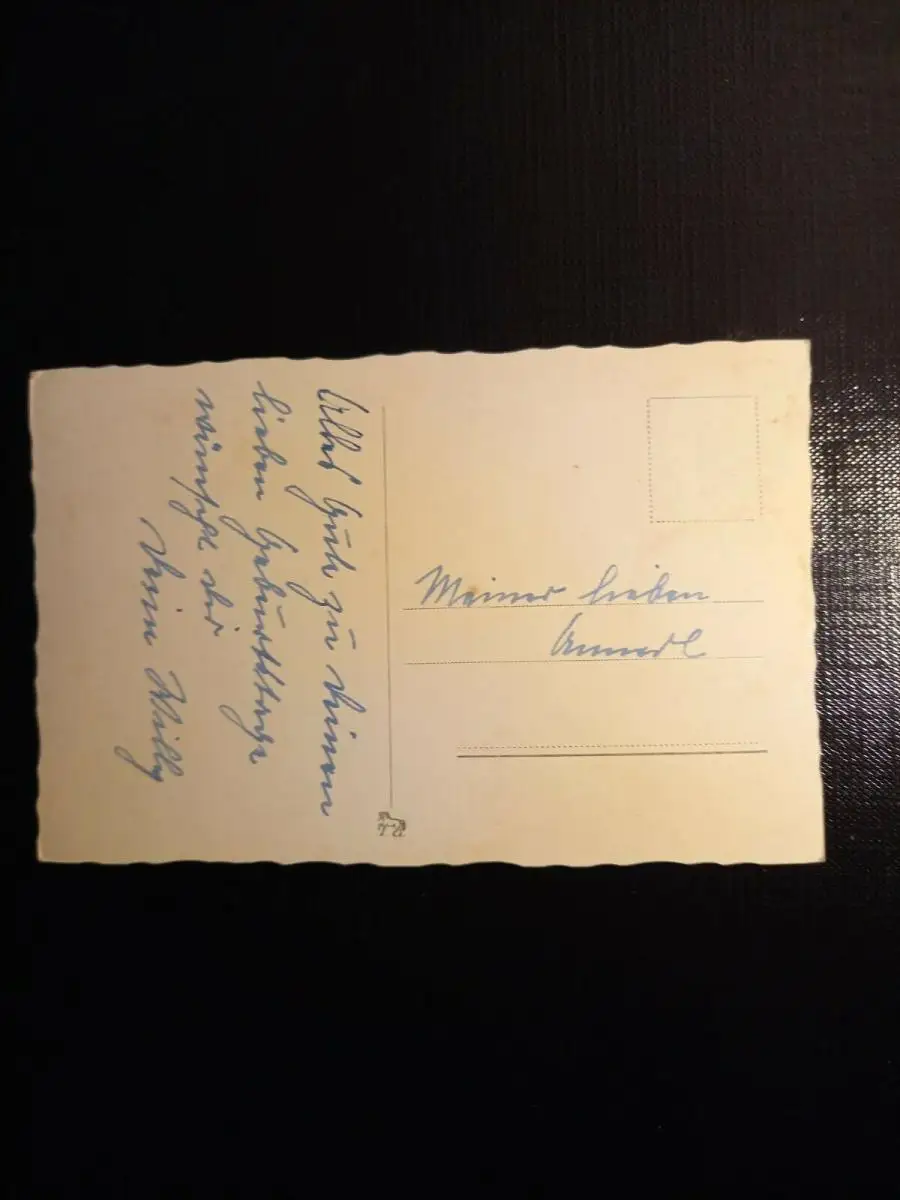 Alles Gute zu Deinem
lieben Geburtstage
wünscht dir
Dein Willy
Meiner lieben
Annerl